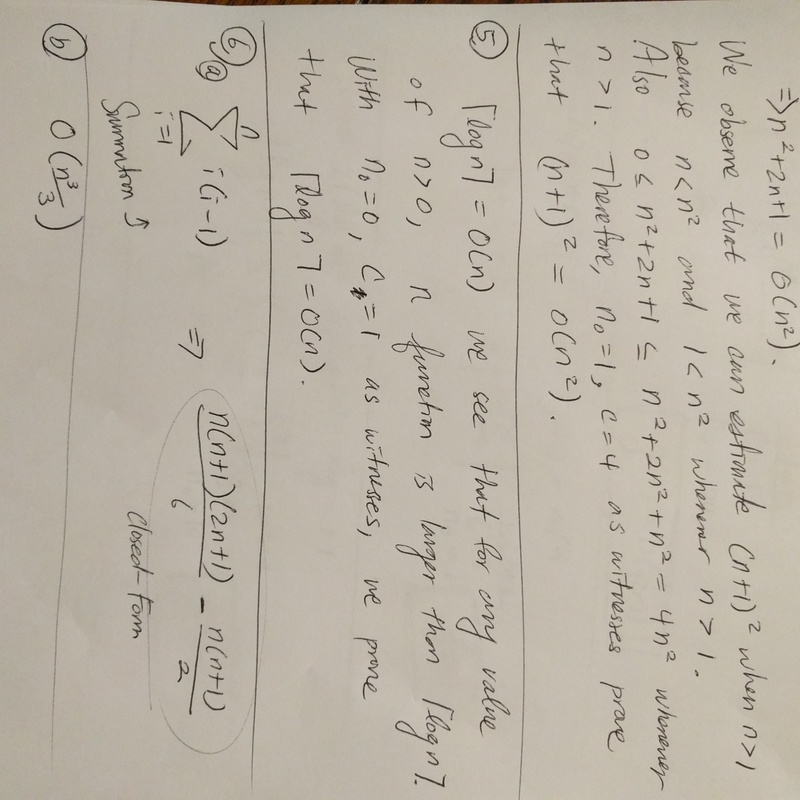 ⇒ n²+2n+1 = O(n²).
We observe that we can estimate (n+1)² when n>1
because n<n² and 1<n² whenever n>1.
Also 0 ≤ n²+2n+1 ≤ n²+2n²+n² = 4n² whenever
n>1. Therefore, n₀=1, c=4 as witnesses prove
that (n+1)² = O(n²).
⑤ ⌈log n⌉ = O(n) we see that for any value
of n>0, n function is larger then ⌈log n⌉.
With n₀=0, C=1 as witnesses, we prove
that ⌈log n⌉ = O(n).
⑥ ⓐ n∑i=1 i(i-1) ⇒ n(n+1)(2n+1)/6 - n(n+1)/2
Summation ↑ Closed-Form
ⓑ O(n³/3)